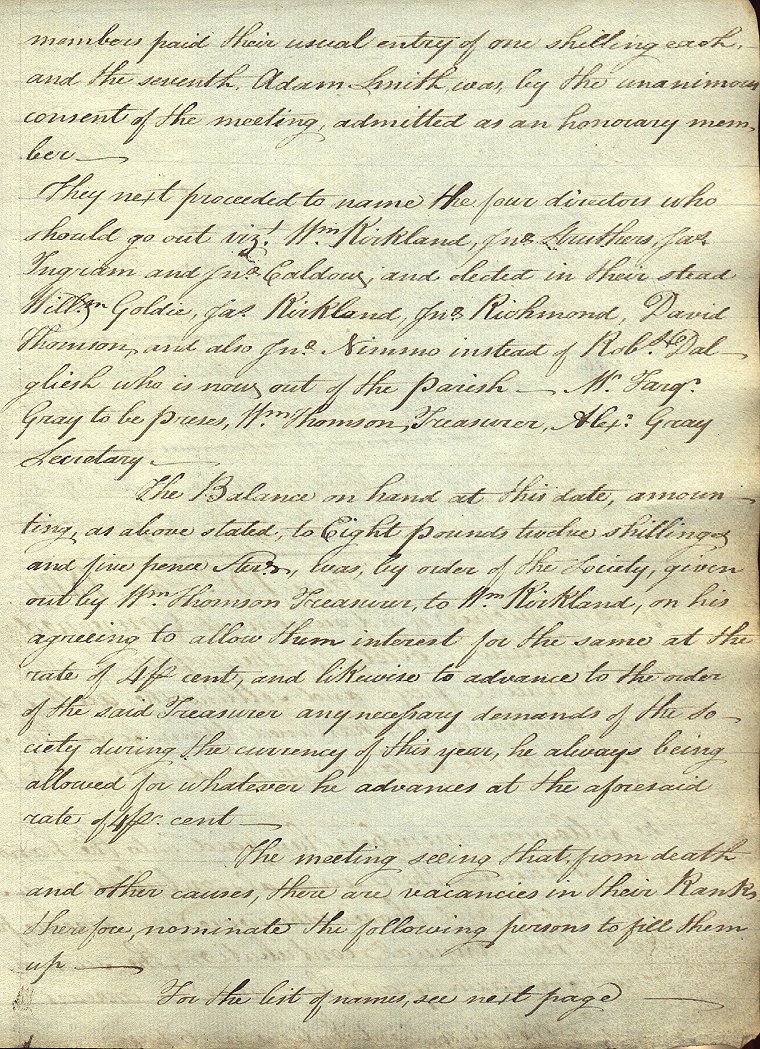 members paid their usual entry of one shelling each,
and the seventh, Adam Smith, was, by the unanimous
consent of the meeting, admitted as an honorary mem-
ber —
They next proceeded to name the four directors who
should go out vizt. Wm Kirkland, Jno. Struthers, Jas.
Ingram and Jno. Caldow, and elected in their stead
Willm Goldie, Jas. Kirkland, Jno. Richmond, David
Thomson, and also Jno. Nimmo instead of Robt. Dal-
gliesh who is now out of the parish — Mr. Farqr.
Gray to be preses, Wm Thomson, Treasurer, Alexr. Gray
Secretary —
The Balance on hand at this date, amoun-
ting, as above stated, to Eight pounds twelve shillings
and five pence Ster., was, by order of the Society, given
out by Wm Thomson Treasurer, to Wm Kirkland, on his
agreeing to allow them interest for the same at the
rate of 4 pr cent, and likewise to advance to the order
of the said Treasurer any necessary demands of the So-
ciety during the currency of this year, he always being
allowed for whatever he advances at the aforesaid
rate of 4 pr. cent —
The meeting seeing that from death
and other causes, there are vacancies in their Ranks
therefore, nominate the following persons to fill them
up —
For the list of names, see next page —